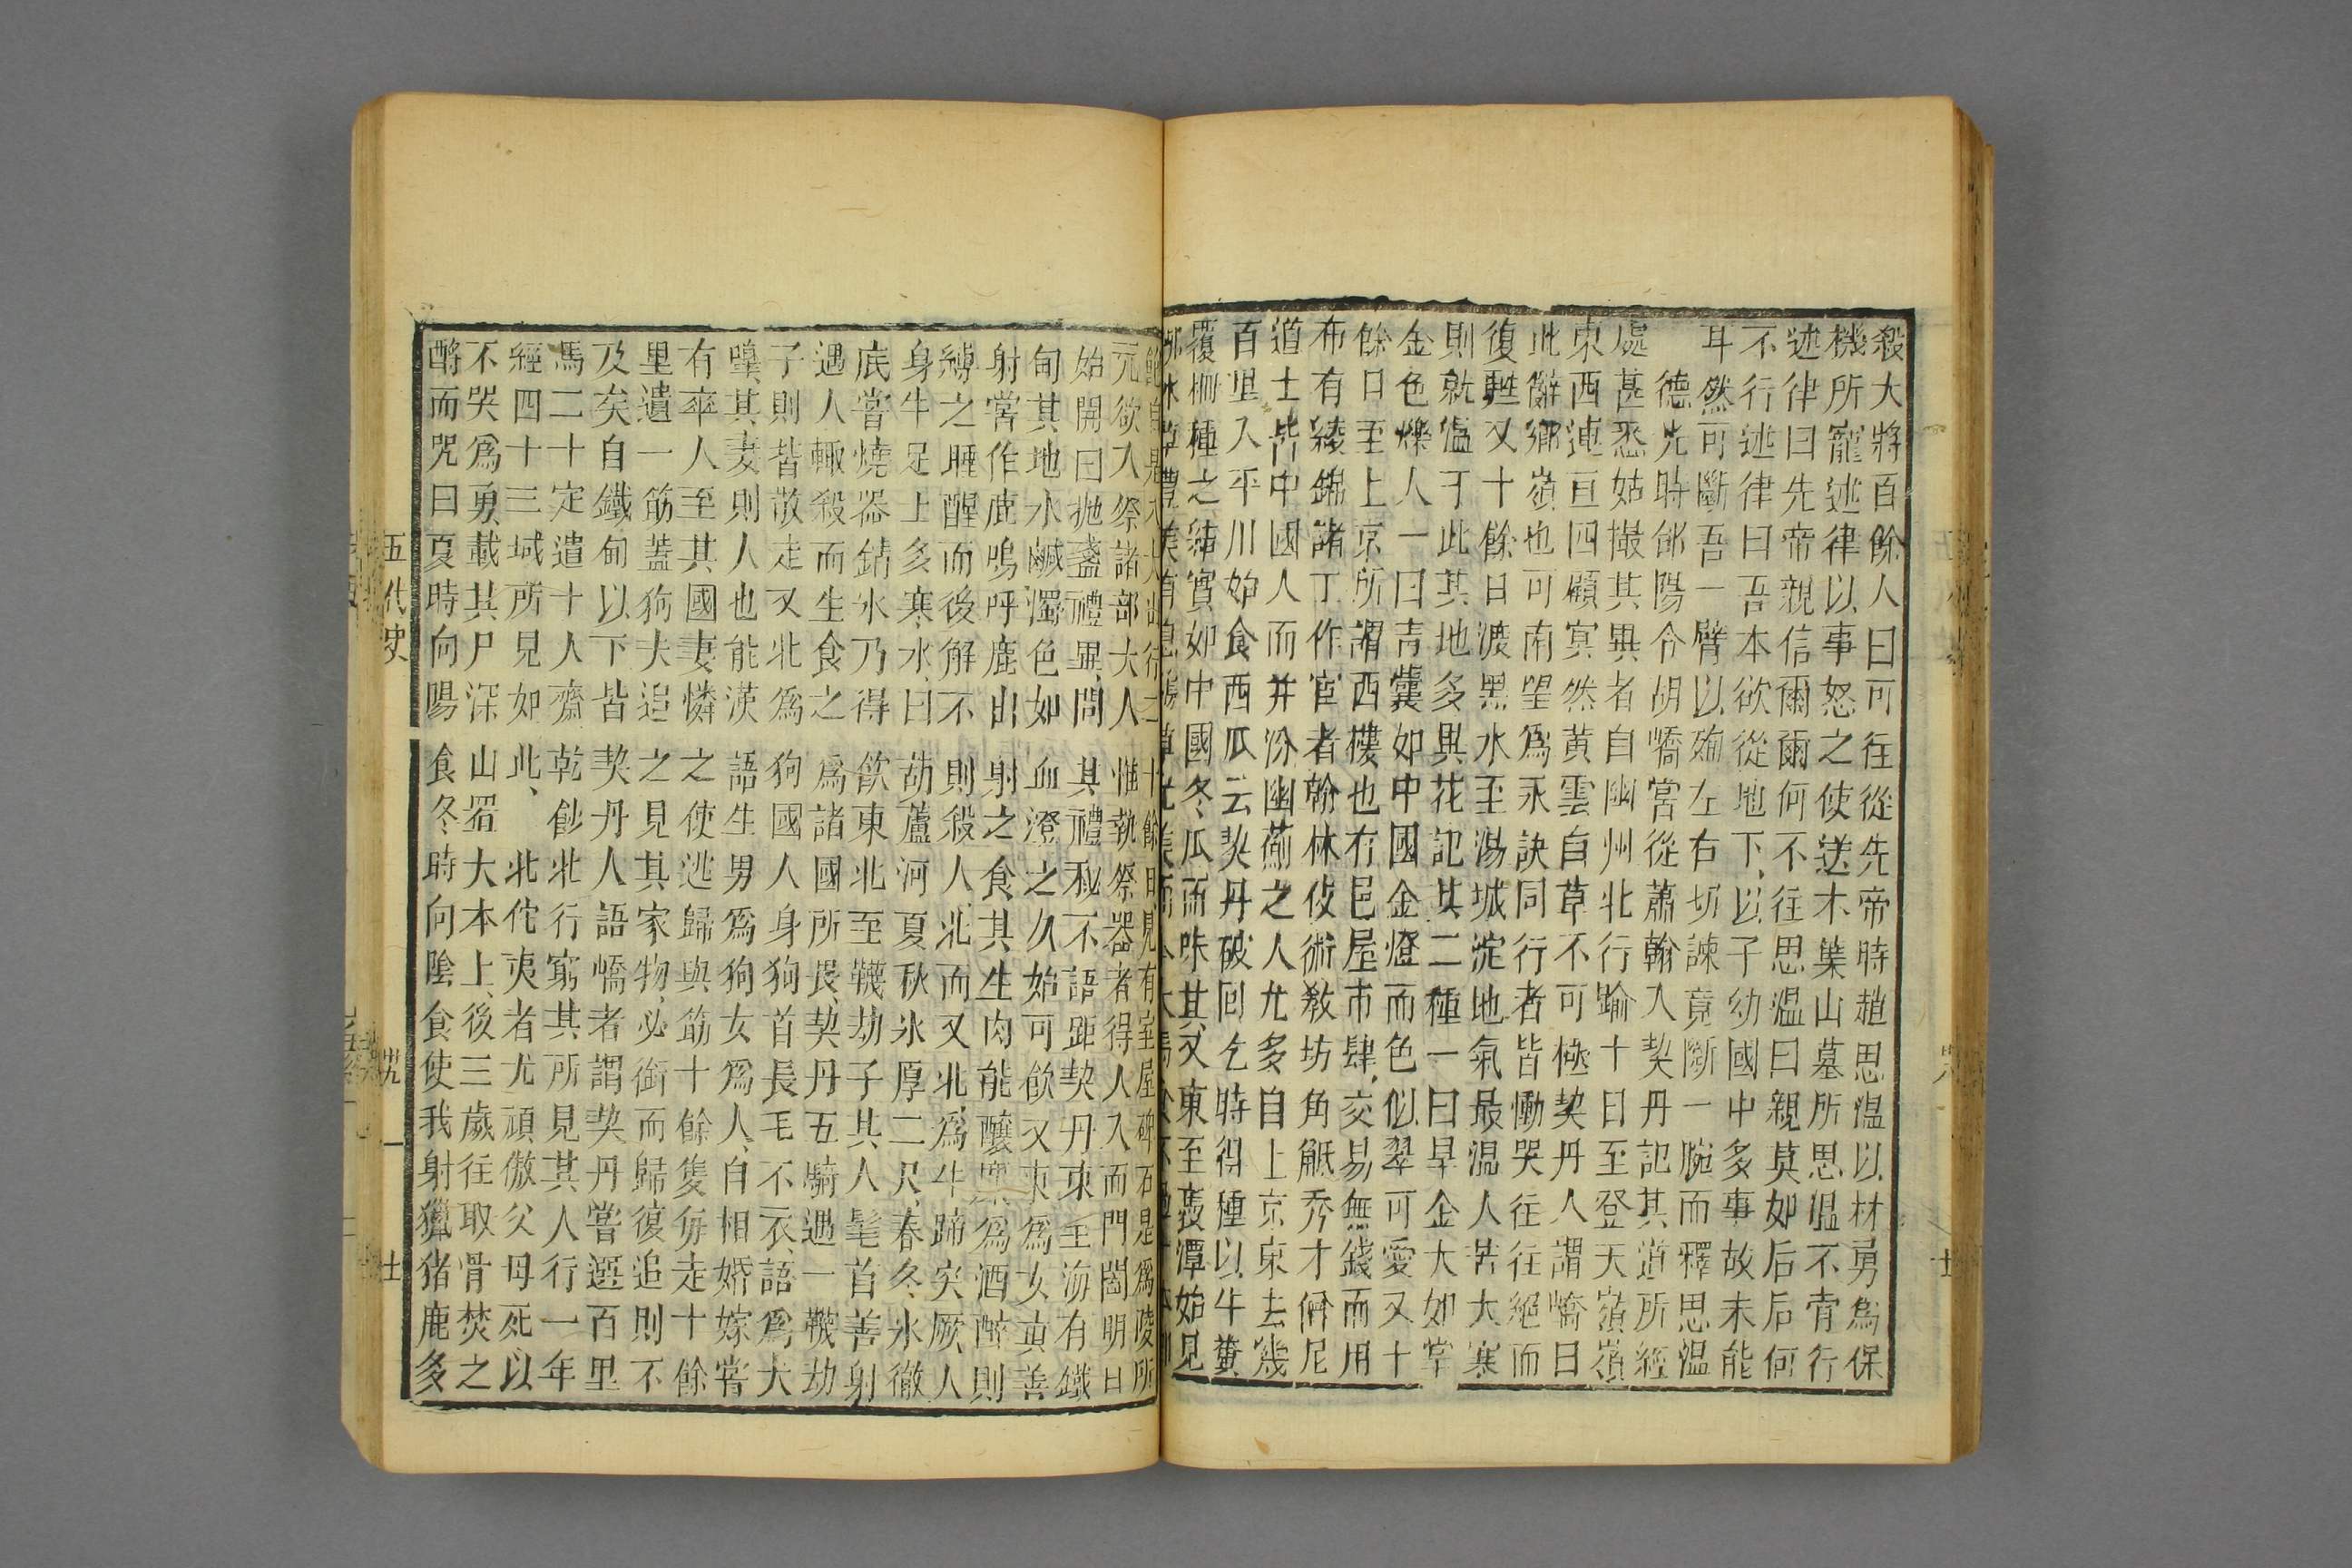 殺大將百餘人曰可往從先帝時趙思温以材勇爲保
機所寵述律以事怒之使送木葉山墓所思温不肯行
述律曰先帝親信爾爾何不往思温曰親莫如后后何
不行述律曰吾本欲從地下以子幼國中多事故未能
耳然可斷吾一臂以殉左右切諫竟斷一腕而釋思温
德光時郃陽令胡嶠嘗從蕭翰入契丹記其道所經
處甚悉姑撮其異者自幽州北行踰十日至登天嶺嶺
東西連亘四顧冥然黄雲自草不可極契丹人謂嶠曰
此辭鄉嶺也可南望爲永訣同行者皆慟哭往往絕而
復甦又十餘日渡黑水至湯城淀地氣最温人苦大寒
則就温于此其地多異花記其二種一曰旱金大如掌
金色爍人一曰青囊如中國金燈而色似翠可愛又十
餘日至上京所謂西樓也有邑屋市肆交易無錢而用
布有綾錦諸工作宦者翰林伎術教坊角觝秀才僧尼
道士皆中國人而并汾幽薊之人尤多自上京東去幾
百里入平川始食西瓜云契丹破回乞時得種以牛糞
覆棚種之結實如中國冬瓜而味其又東至褭潭始見
草豐美有息草尤美而
飽自是入大山行之十餘日見有室屋碑石是爲陵所
兀欲入祭諸部大人惟執祭器者得人入而門闔明日
始開曰抛盞禮畢問其禮秘不語距契丹東至海有鐵
甸其地水鹹濁色如血澄之久始可飲又東爲女真善
射嘗作鹿鳴呼鹿出射之食其生肉能釀糜爲酒醉則
縛之睡醒而後解不則殺人北而又北爲牛蹄突厥人
身牛足上多寒水曰葫蘆河夏秋氷厚二尺春冬氷徹
底嘗燒器銷氷乃得飲東北至韈劫子其人髦首善射
遇人輙殺而生食之爲諸國所畏契丹五騎遇一韈劫
子則皆散走又北爲狗國人身狗首長毛不衣語爲犬
嘷其妻則人也能漢語生男爲狗女爲人自相婚嫁嘗
有卒人至其國妻憐之使逃歸與筯十餘隻每走十餘
里遺一筯蓋狗夫追之見其家物必銜而歸復追則不
及矣自鐵甸以下皆契丹人語嶠者謂契丹嘗選百里
馬二十定遣十人齎乾䬪北行窮其所見其人行一年
經四十三城所見如此　北佗夷者尤頑傲父母死以
不哭爲勇載其尸深山置大木上後三歲往取骨焚之
酹而呪曰夏時向陽食冬時向陰食使我射獵猪鹿多
五代史